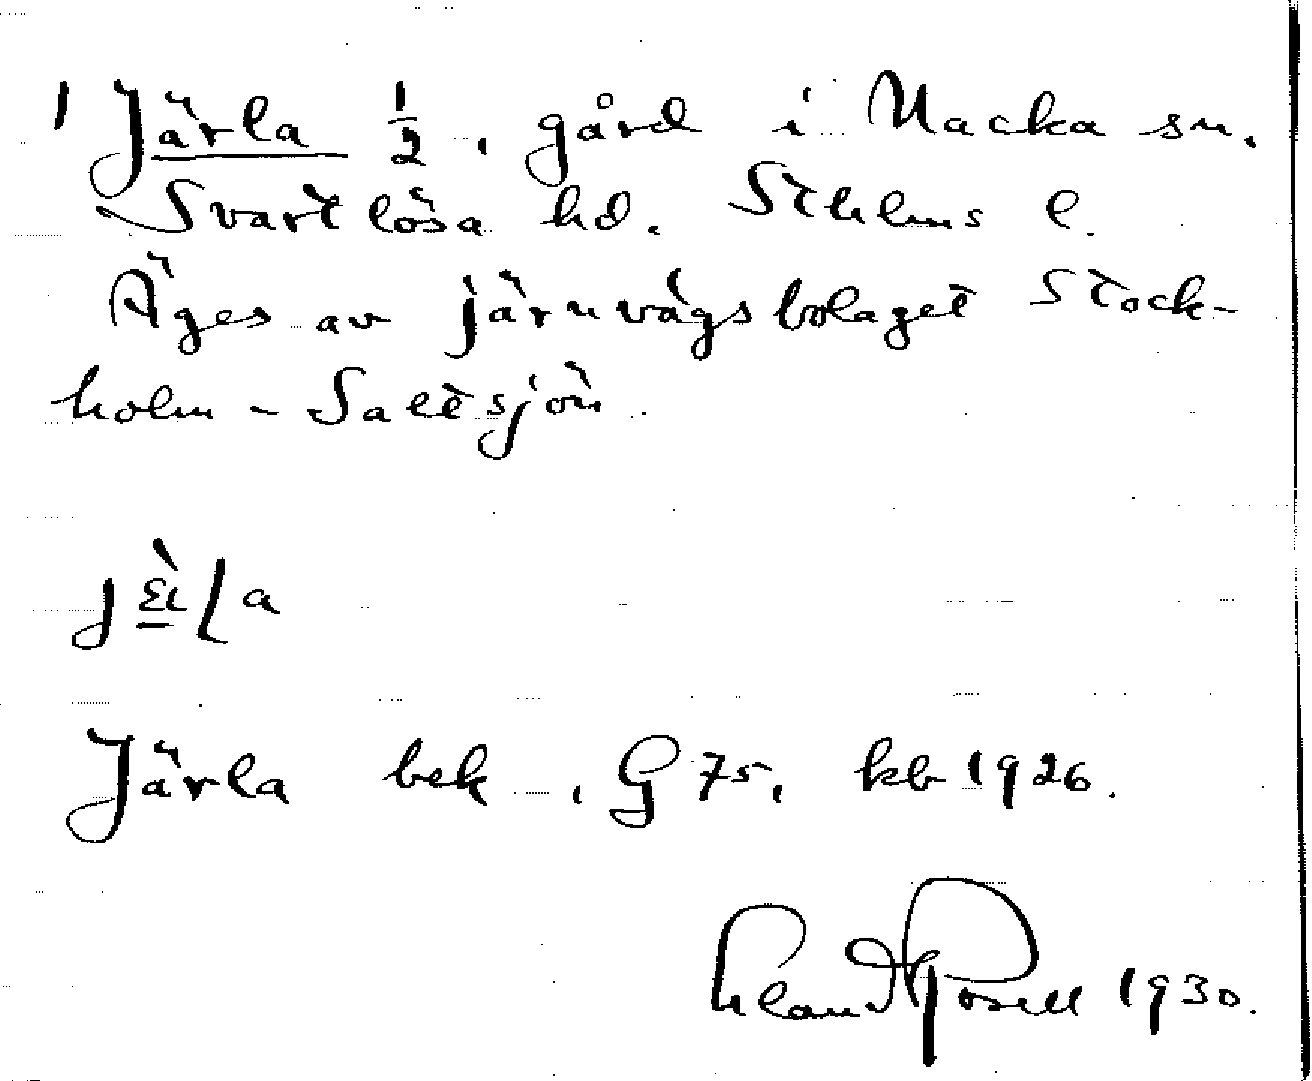 1 Järla ½, gård i Nacka sn,
Svartlösa hd. Sthlms l.
Äges av järnvägsbolaget Stock-
holm - Saltsjön.
Järla bek., G 75, kb 1926.
Erland Rosell 1930.